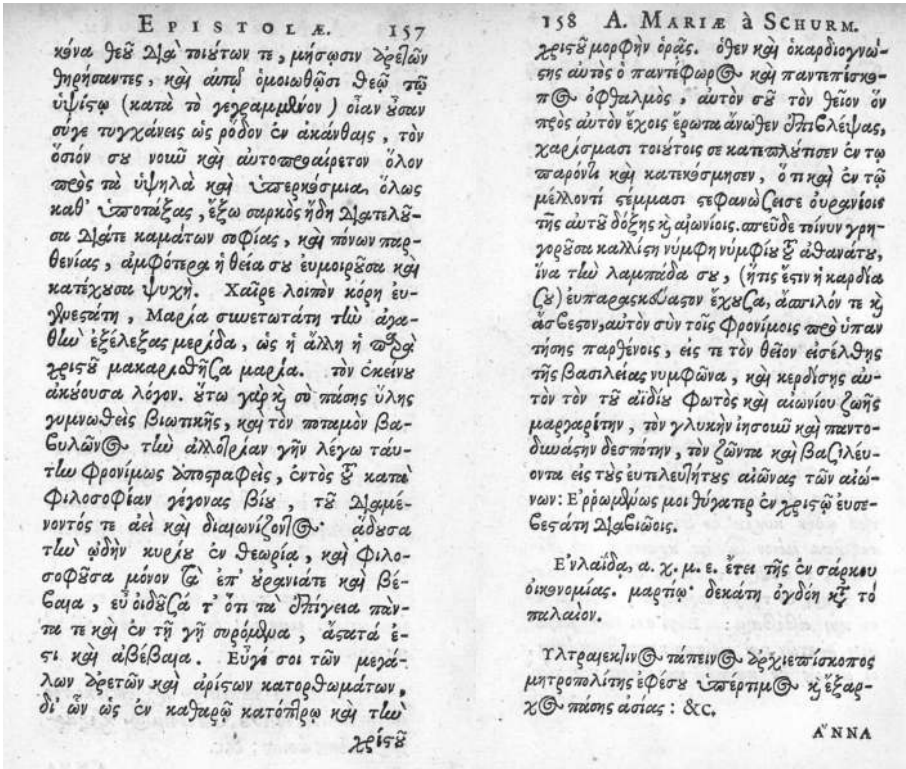 EPISTOLÆ. 157
κόνα θεῦ Διὰ τοιύτων τε, μήσωσιν ἀρετῶν
θηρήσαντες, καὶ αὐτῷ ὁμοιωθῶσι θεῷ τῷ
ὑψίςῳ (κατὰ τὸ γεγραμμένον) οἷαν ὖσαν
σύγε τυγχάνεις ὡς ρόδον ἐν ἀκάνθαις, τὸν
ὅσιόν συ νοιῦ καὶ αὐτοπροαίρετον ὅλον
πρὸς τὰ ὑψηλὰ καὶ ὑπερκόσμια ὅλως
καθ' ὑποτάξας, ἔξω σαρκὸς ἤδη Διατελῦ-
σα Διάτε καμάτων σοφίας, καὶ πόνων παρ-
θενίας, ἀμφότερα ἡ θεία συ ευμοιρῦσα καὶ
κατέχυσα ψυχή. Χαῖρε λοιπὸν κόρη ευ-
γενεςάτη, Μαρία συνετωτάτη τὴν ἀγα-
θὴν ἐξέλεξας μερίδα, ὡς ἡ ἄλλη ἡ παρὰ
χριςῦ μακαριοθῆζα μαρία. τὸν ἐκείνυ
ἀκύουσα λόγον. ὕτω γὰρ κ̀ σὺ πάσης ὕλης
γυμνωθεὶς βιωτικῆς, καὶ τὸν ποταμὸν βα-
ϐυλῶνος τὴν ἀλλοτρίαν γῆν λέγω ταύ-
την φρονίμως ἀποςραφεὶς, ἐντὸς ῦ κατὰ
φιλοσοφίαν γέγονας βίυ, τῦ Διαμέ-
νοντός τε ἀεὶ καὶ διαιωνίζοντος ἄδυσα
τὴν ᾠδὴν κυρίυ ἐν θεωρίᾳ, καὶ φιλο-
σοφῦσα μόνον τὰ ἐπ' ὐρανιάτε καὶ βέ-
ϐαια, εὖ οἰδυῖζά τ' ὅτι τὰ ἐπίγεια πάν-
τα τε καὶ ἐν τῇ γῇ συρόμενα, ἄςατά ἐ-
ςι καὶ ἀβέβαια. Εὖγέ σοι τῶν μεγά-
λων ἀρετῶν καὶ ἀρίςων κατορθωμάτων,
δι' ὧν ὡς ἐν καθαρῷ κατόπτρῳ καὶ τὴν
χριςῦ
158 A. MARIÆ à SCHURM.
χριςῦ μορφὴν ὁρᾷς. ὅθεν καὶ ὁκαρδιογνώ-
ςης αὐτὸς ὁ παντέφορος καὶ παντεπίσκο-
πος ὀφθαλμὸς, αὐτόν σῦ τὸν θεῖον ὃν
πρὸς αὐτὸν ἔχοις ἔρωτα ἄνωθεν ἐπιβλέψας,
χαρίσμασι τοιύτοις σε κατεπλύτισεν ἐν τῳ
παρόντι καὶ κατεκόσμησεν, ὅτι καὶ ἐν τῷ
μέλλοντί ςέμμασι ςεφανώζεισε ὀυρανίοις
τῆς αυτῦ δόξης κ̀ αιωνίοις. σπεῦδε τοίνυν γρη-
γορῦσα καλλίςη νύμφη νύμφίυ ῦ ἀθανάτυ,
ἵνα τὴν λαμπάδα συ, (ἥτις ἔςιν ἡ καρδία
ζυ) ἐυπαρασκεύαςον ἔχυζα, ἄσπιλόν τε κ̀
ἄσϐεςον, αὐτὸν σὺν τοῖς φρονίμοις πρὸ ὑπαν
τήσης παρθένοις, εἰς τε τὸν θεῖον εἰσέλθης
τῆς βασιλείας νυμφῶνα, καὶ κερδίσης αὐ-
τὸν τὸν τῦ αϊδίυ φωτὸς καὶ αἰωνίου ζωῆς
μαργαρίτην, τὸν γλυκὴν ἰησοιῦ καὶ παντο-
δυνάςην δεσπότην, τὸν ζῶντα καὶ βαζιλέυ-
οντα εἰς τὺς ἀτελευτήτυς αἰῶνας τῶν αἰώ-
νων: Εῤῥωμένως μοι θύγατερ ἐν χριςῷ ἐυσε-
ϐεςάτη Διαβιῴοις.
Εν λαίδᾳ, α. χ. μ. ε. ἔτει τῆς ἐν σάρκου
οικονομίας. μαρτίῳ δεκάτῃ ὀγδόῃ κατ τὸ
παλαιὸν.
Υλτραιεκτινος τάπεινος ἀρχιεπίσκοπος
μητροπολίτης ἐφέσυ ὑπέρτιμος κ̀ ἔξαρ-
χος πάσης ἀσίας: &c.
ἌΝΝΑ